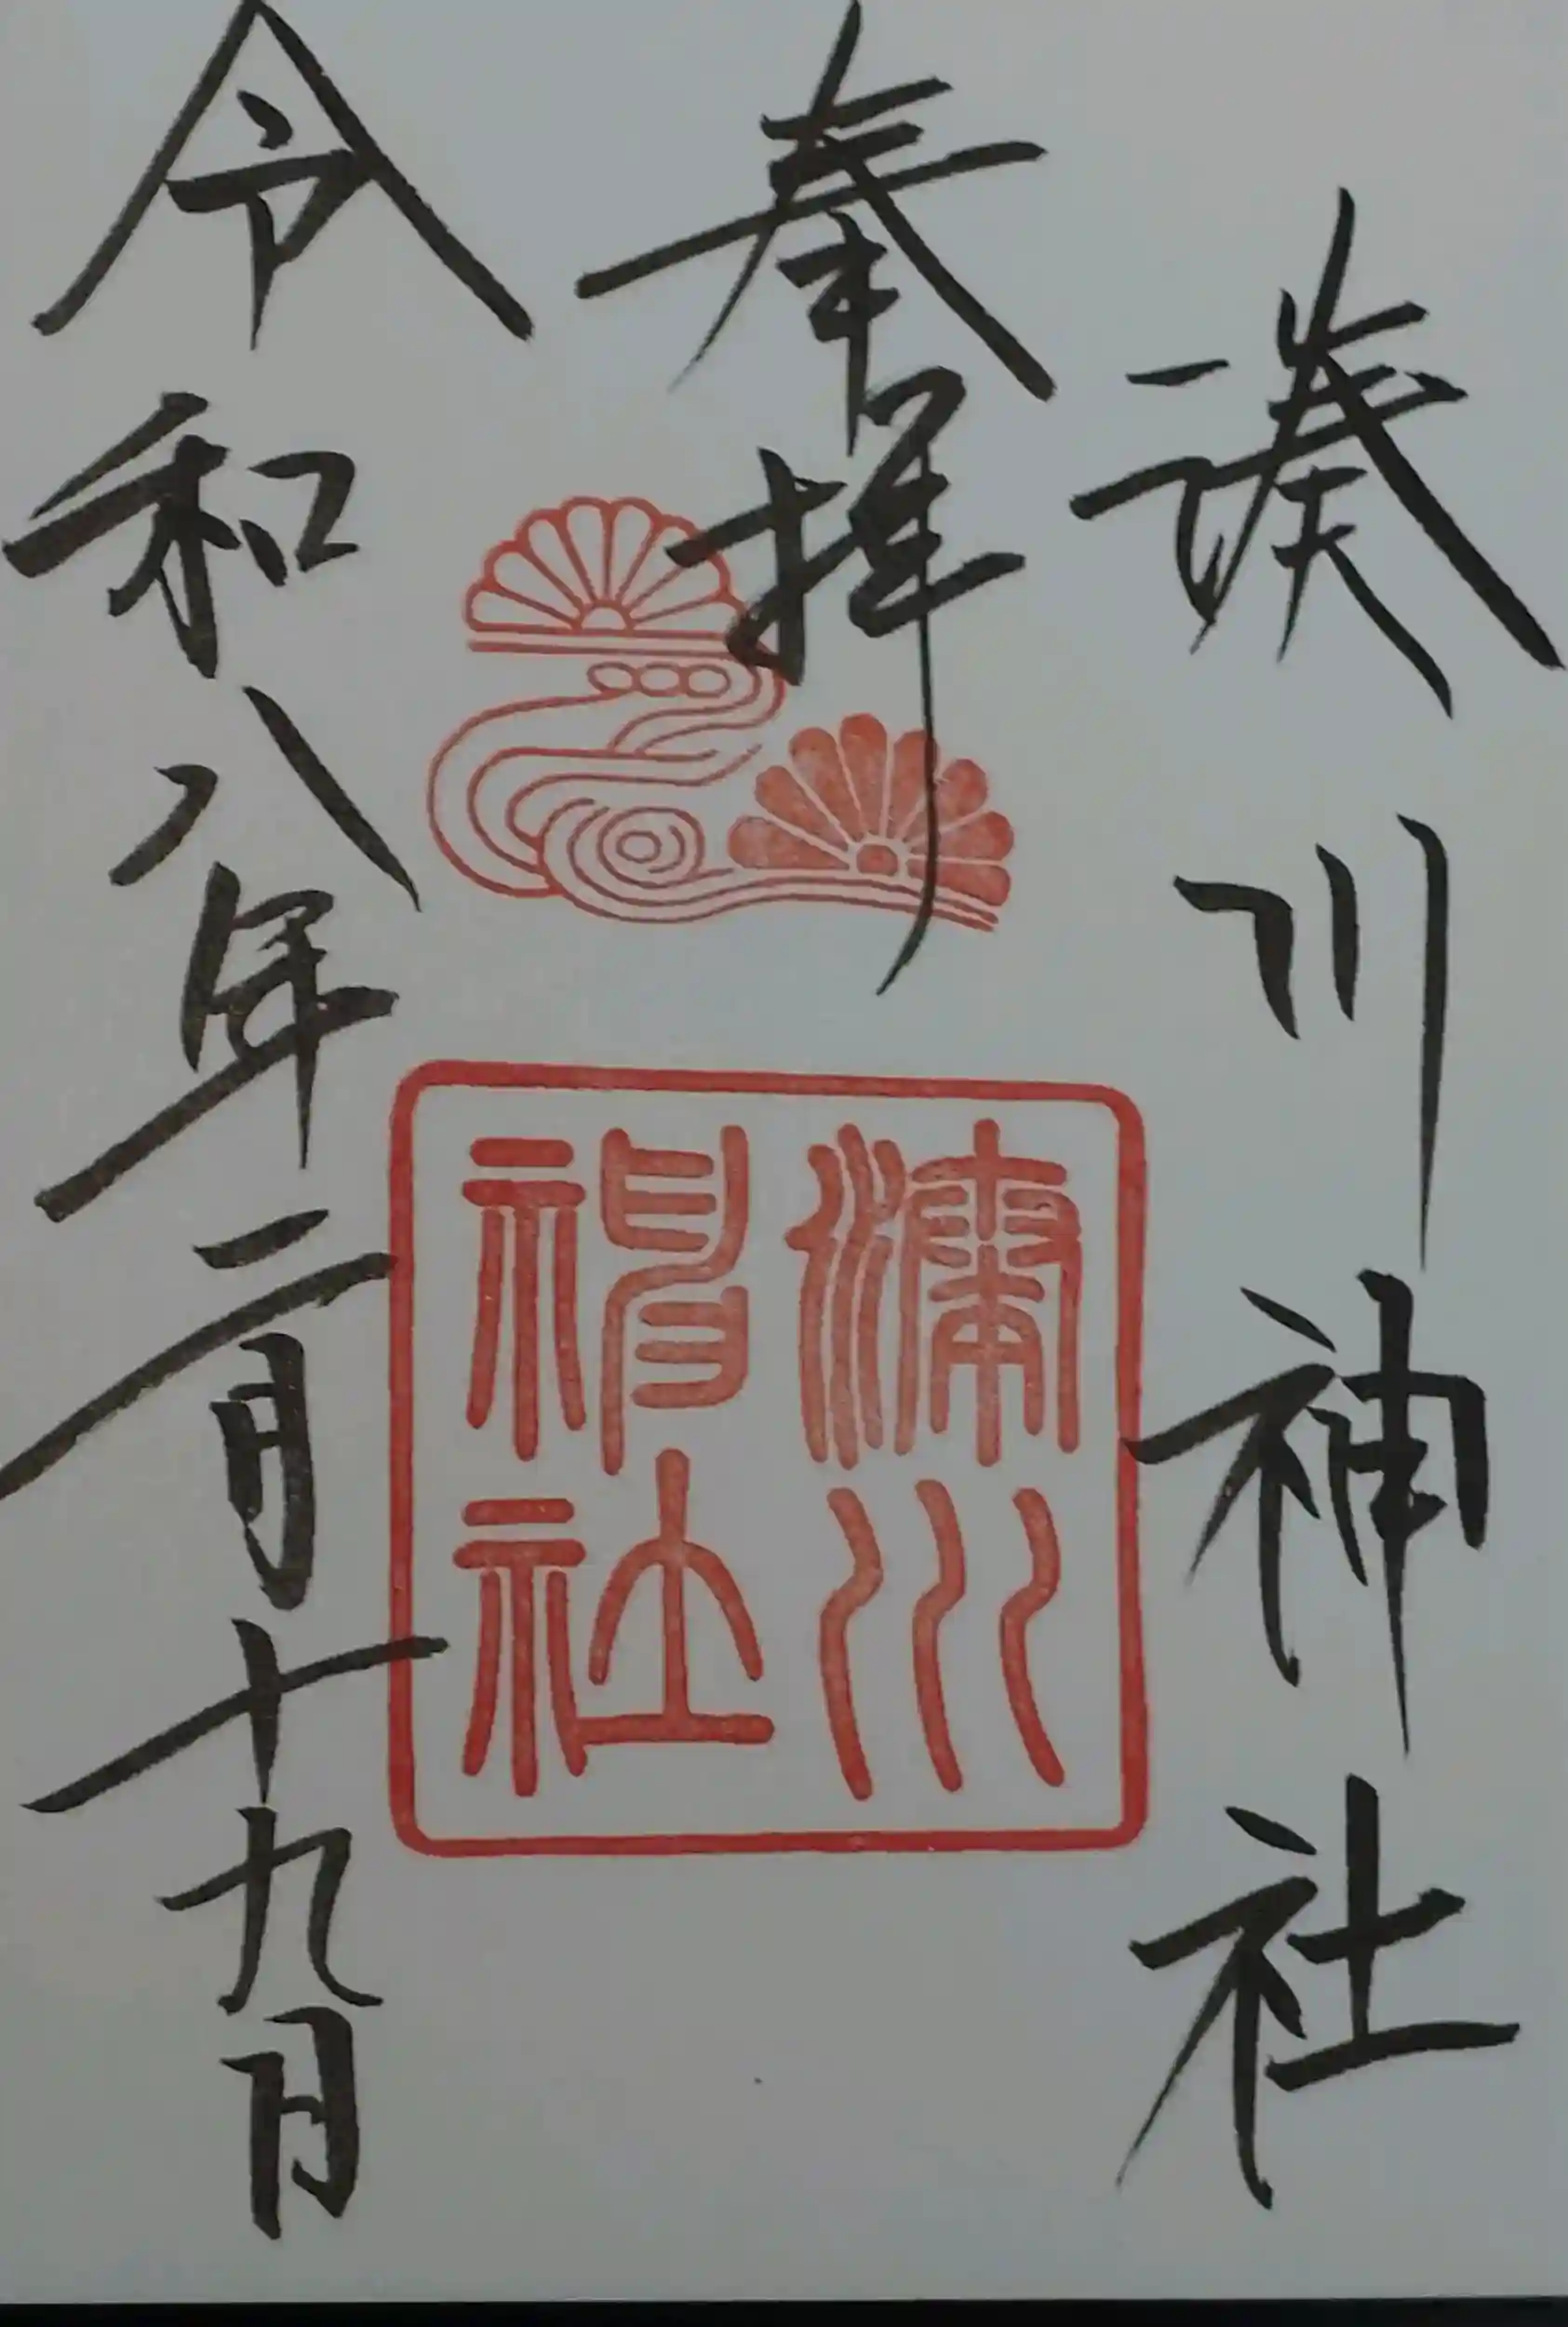 湊川神社
奉拝
湊川
神社
令和八年二月十九日